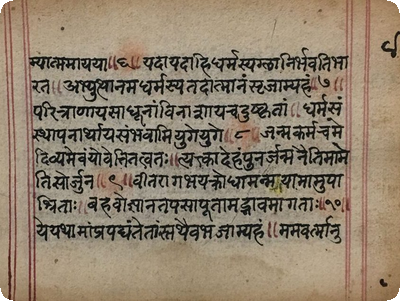 म्यात्ममायया ॥६॥ यदा यदा हि धर्मस्य ग्लानिर्भवति भा
रत अभ्युत्थानमधर्मस्य तदात्मानं सृजाम्यहं ॥७॥
परित्राणाय साधूनां विनाशाय च दुष्कृतां धर्मसं
स्थापनार्थाय संभवामि युगे युगे ॥८ जन्म कर्म च मे
दिव्यमेवं यो वेत्ति तत्वतः ॥ त्यक्त्वा देहं पुनर्जन्म नैति मामे
ति सोर्जुन ॥९॥ वीतरागभयक्रोधा मन्मया मामुपा
श्रिताः बहवो ज्ञानतपसा पूता मद्भावमागताः ॥१०॥
ये यथा मां प्रपद्यंते तांस्तथैव भजाम्यहं ॥ मम वर्त्मानु